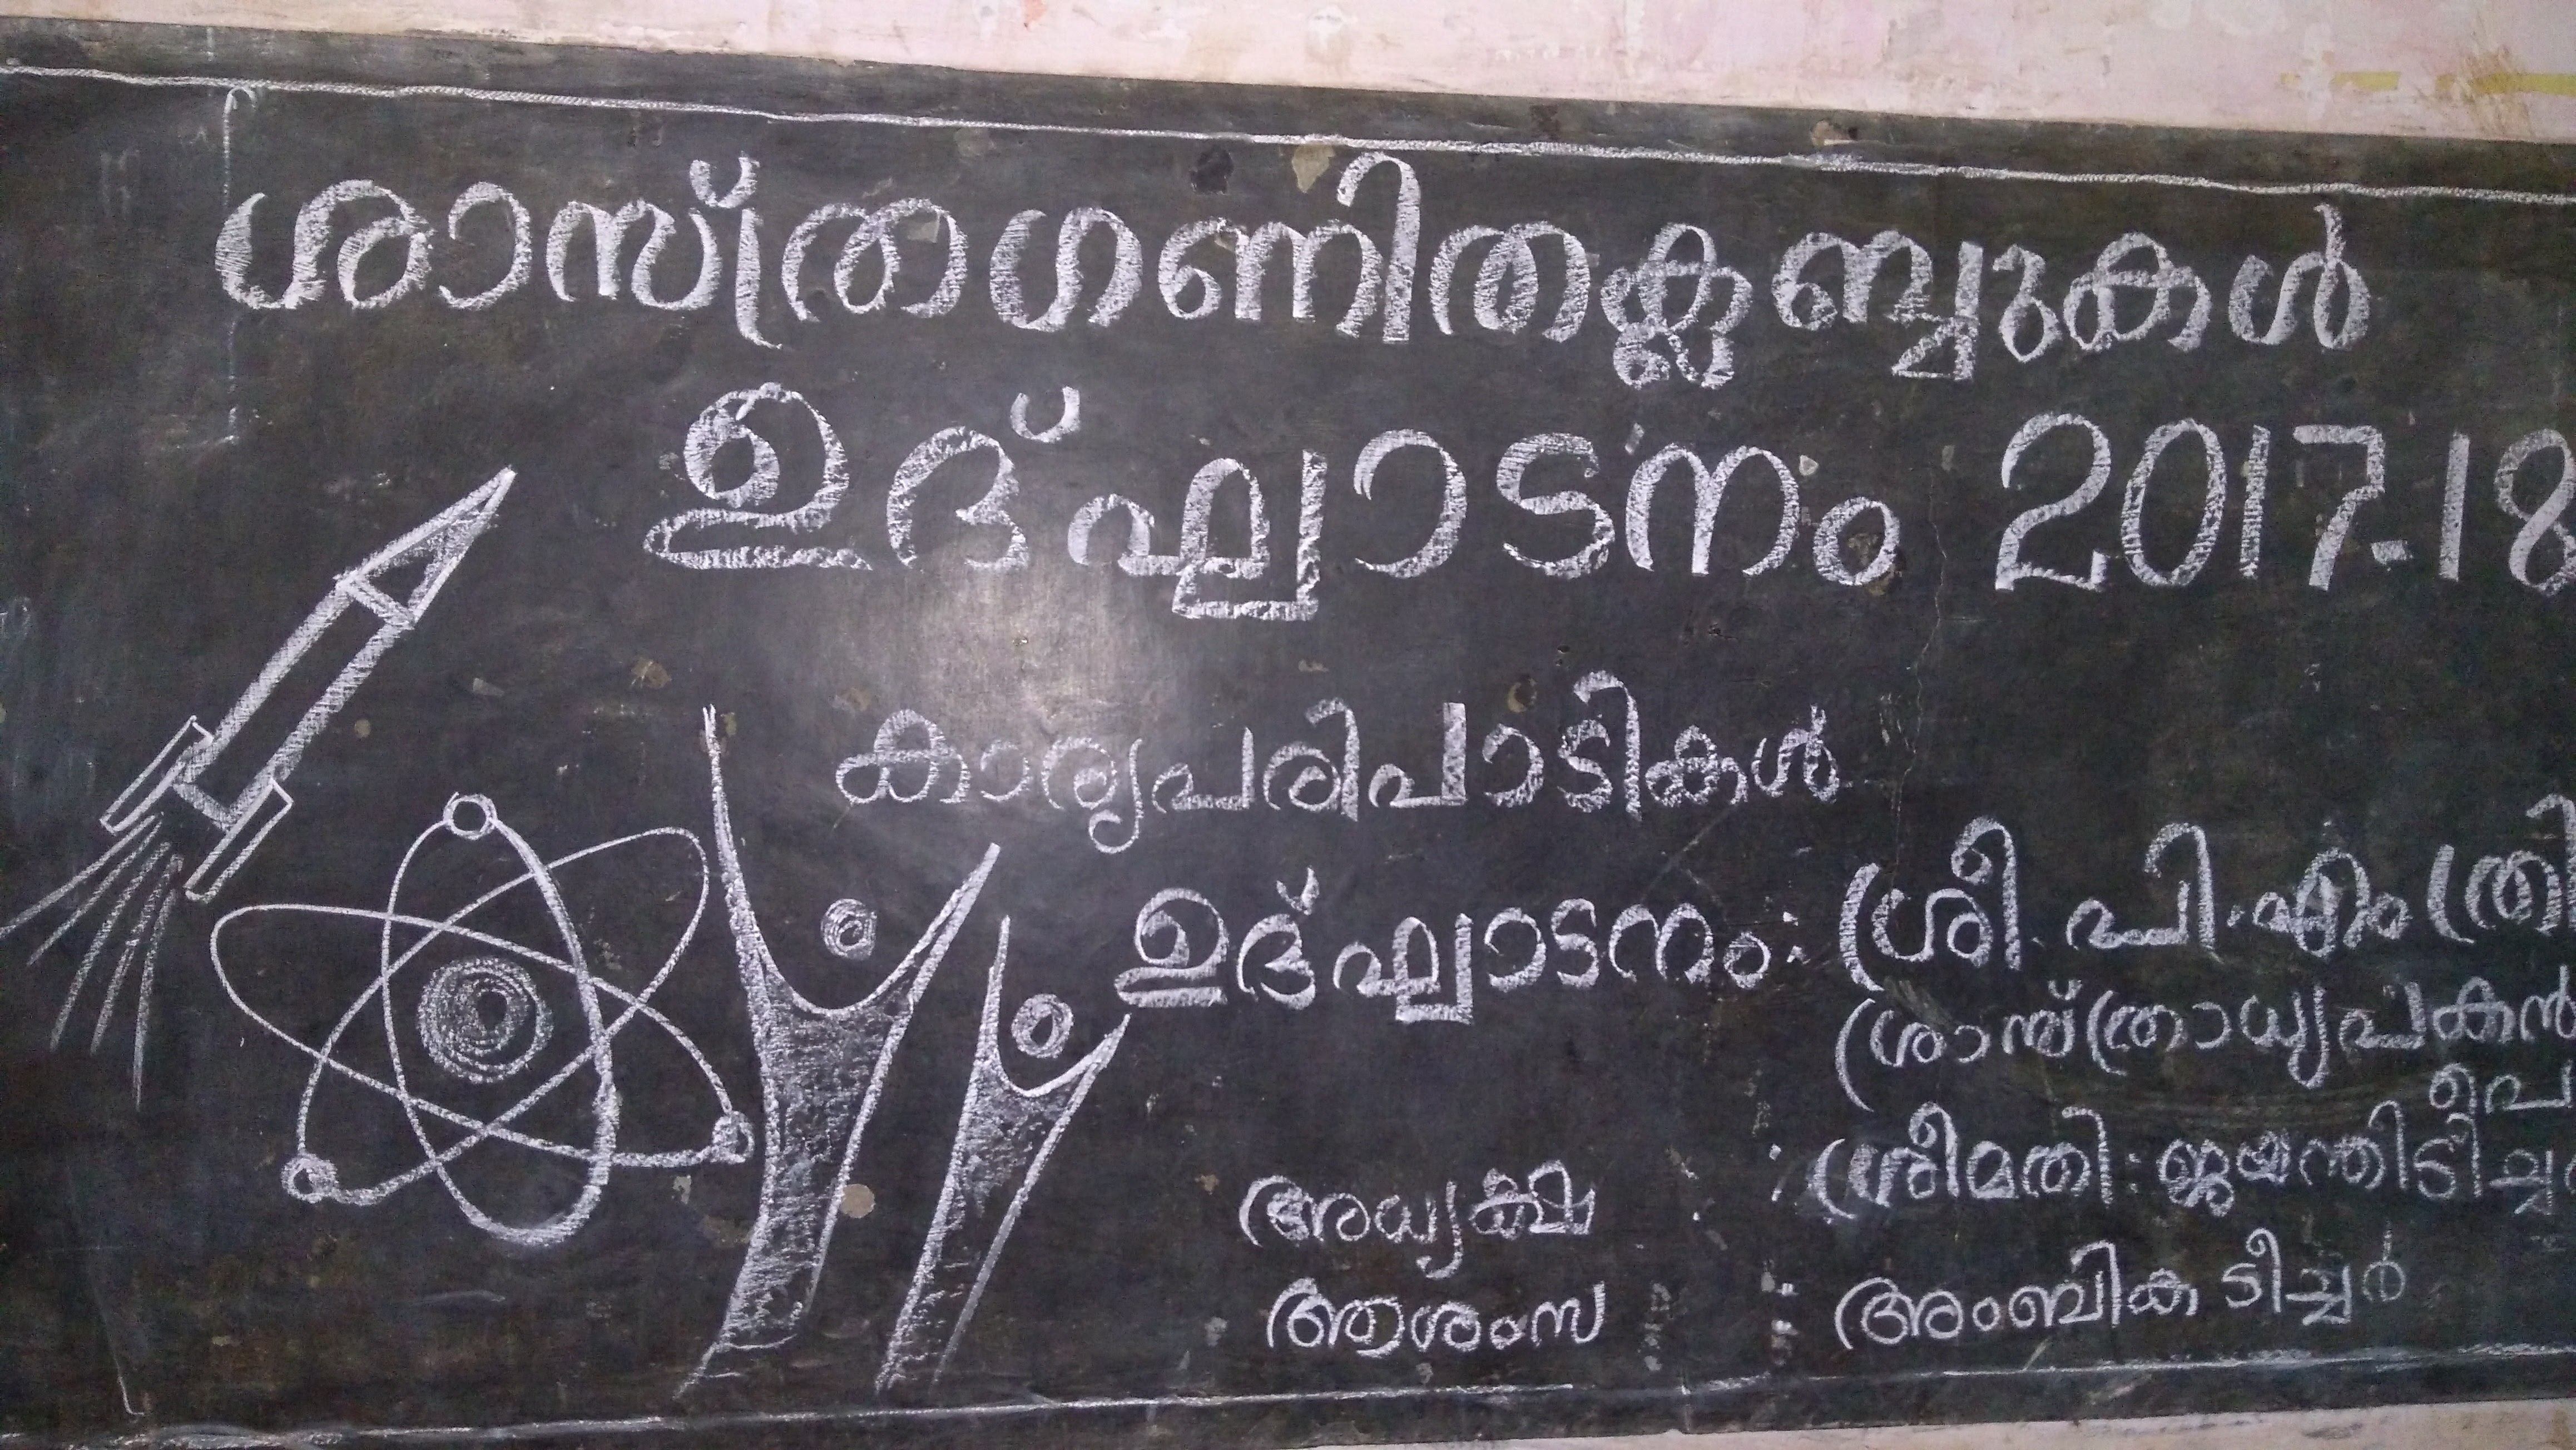 ശാസ്ത്രഗണിതക്ലബ്ബുകൾ
ഉദ്ഘാടനം 2017-18
കാര്യപരിപാടികൾ
ഉദ്ഘാടനം : ശ്രീ. പി. എം
(ശാസ്ത്രാധ്യപകൻ
അധ്യക്ഷ : ശ്രീമതി : ജയന്തിടീച്ച
ആശംസ : അംബിക ടീച്ചർ